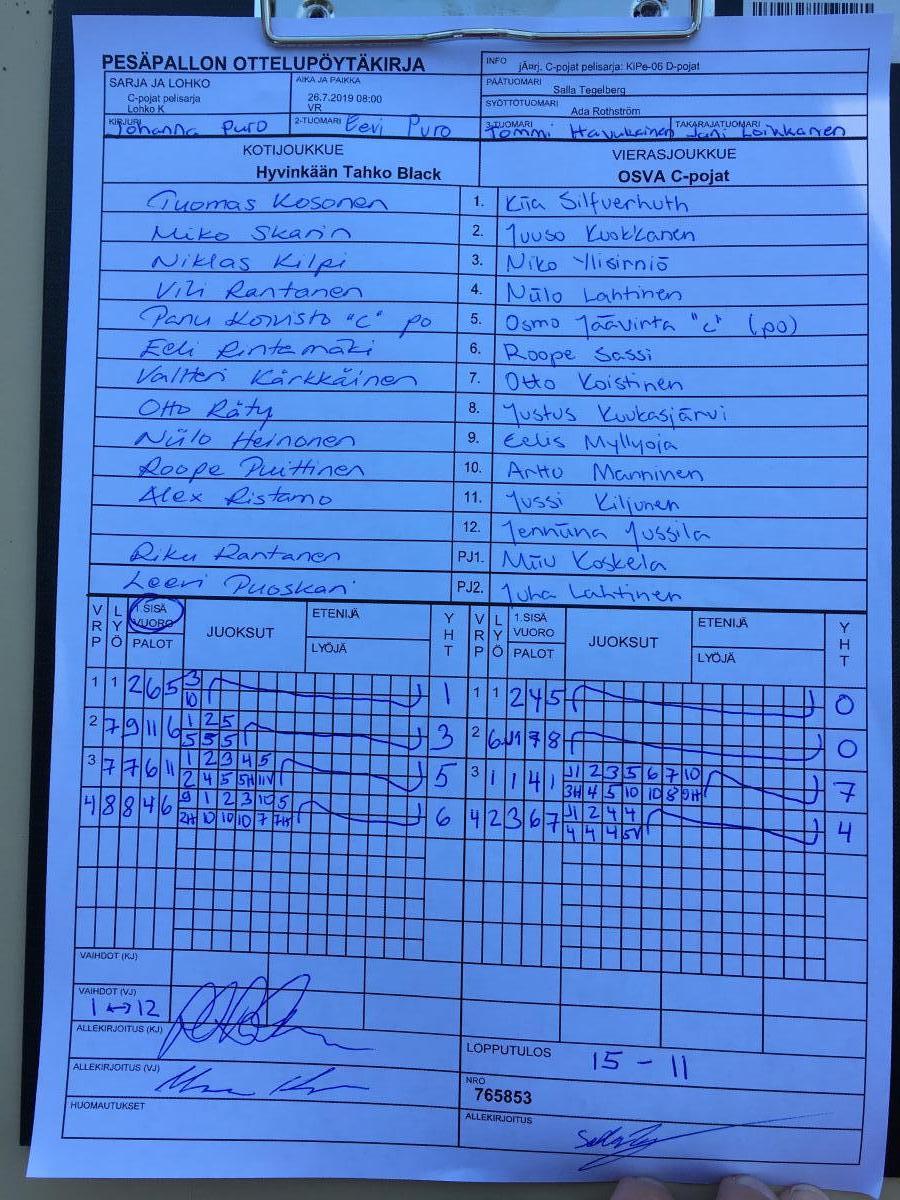 PESÄPALLON OTTELUPÖYTÄKIRJA
INFO jÄ¤rj. C-pojat pelisarja: KiPe-06 D-pojat
SARJA JA LOHKO
C-pojat pelisarja
Lohko K
AIKA JA PAIKKA
26.7.2019 08:00
VR
PÄÄTUOMARI
Salla Tegelberg
SYÖTTÖTUOMARI
Ada Rothström
KIRJURI Johanna Puro
2-TUOMARI Eevi Puro
3-TUOMARI Tommi Havukainen
TAKARAJATUOMARI Jani Loikkanen
KOTIJOUKKUE
Hyvinkään Tahko Black
VIERASJOUKKUE
OSVA C-pojat
Tuomas Kosonen 1. Kiia Silfverhuth
Miko Skarin 2. Juuso Kuokkanen
Niklas Kilpi 3. Niko Ylisirniö
Vili Rantanen 4. Niilo Lahtinen
Panu Koivisto "C" po 5. Osmo Jäävirta "C" (po)
Eeli Rintamäki 6. Roope Sassi
Valtteri Kärkkäinen 7. Otto Koistinen
Otto Räty 8. Justus Kuukasjärvi
Niilo Heinonen 9. Eelis Myllyoja
Roope Puittinen 10. Arttu Manninen
Alex Ristamo 11. Jussi Kiljunen
12. Jenniina Jussila
Riku Rantanen PJ1. Miiu Koskela
Leevi Puoskari PJ2. Juha Lahtinen
VRP LYÖ 1.SISÄ VUORO PALOT JUOKSUT ETENIJÄ LYÖJÄ YHT VRP LYÖ 1.SISÄ VUORO PALOT JUOKSUT ETENIJÄ LYÖJÄ YHT
1 1 2 6 5 3 1 1 1 2 4 5 0
10
2 7 9 11 6 1 2 5 3 2 6 J1 7 8 0
5 5 5
3 7 7 6 11 1 2 3 4 5 5 3 1 1 4 1 J1 2 3 5 6 7 10 7
2 4 5 5H 11V 3H 4 5 10 10 8 9H
4 8 8 4 6 9 1 2 3 10 5 6 4 2 3 6 7 J1 2 4 4 4
2H 10 10 10 7 7H 4 4 4 5V
VAIHDOT (KJ)
VAIHDOT (VJ)
1 ↔ 12
ALLEKIRJOITUS (KJ)
LOPPUTULOS 15 - 11
ALLEKIRJOITUS (VJ)
NRO
765853
HUOMAUTUKSET
ALLEKIRJOITUS